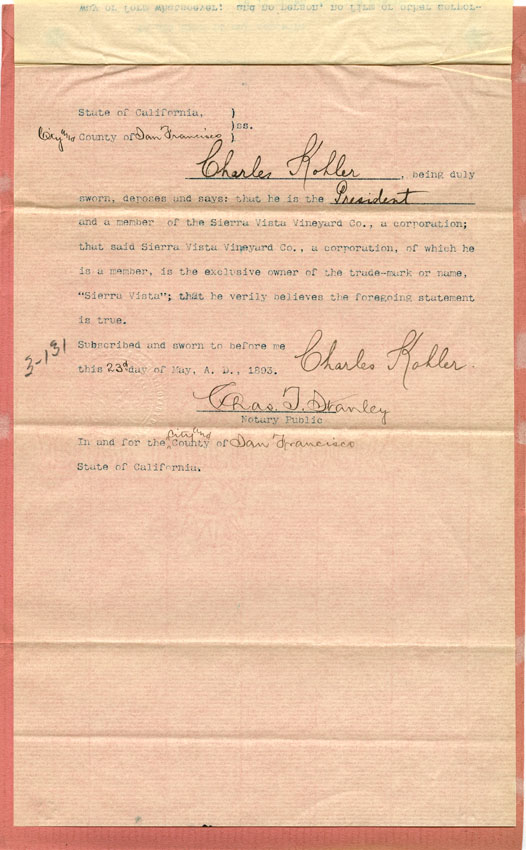 way or form whatsoever: and no person, no firm or other
State of California, )
)ss.
City and County of San Francisco )
Charles Kohler, being duly
sworn, deposes and says: that he is the President
and a member of the Sierra Vista Vineyard Co., a corporation;
that said Sierra Vista Vineyard Co., a corporation, of which he
is a member, is the exclusive owner of the trade-mark or name,
"Sierra Vista"; that he verily believes the foregoing statement
is true.
Subscribed and sworn to before me
this 23d day of May, A. D., 1893.
Charles Kohler.
3-131
Chas. T. Stanley
Notary Public
In and for the City and County of San Francisco
State of California.